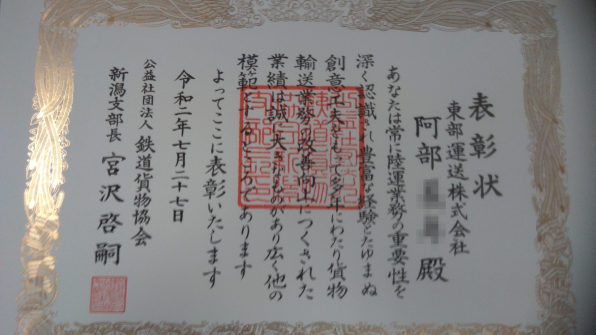 表彰状
東部運送株式会社
阿部 殿
あなたは常に陸運業務の重要性を
深く認識され豊富な経験とたゆまぬ
創意工夫をもって多年にわたり貨物
輸送業務の改善向上につくされた
業績は誠に大きなものがあり広く他の
模範とするところであります
よってここに表彰いたします
令和二年七月二十七日
公益社団法人 鉄道貨物協会
新潟支部長 宮沢啓嗣